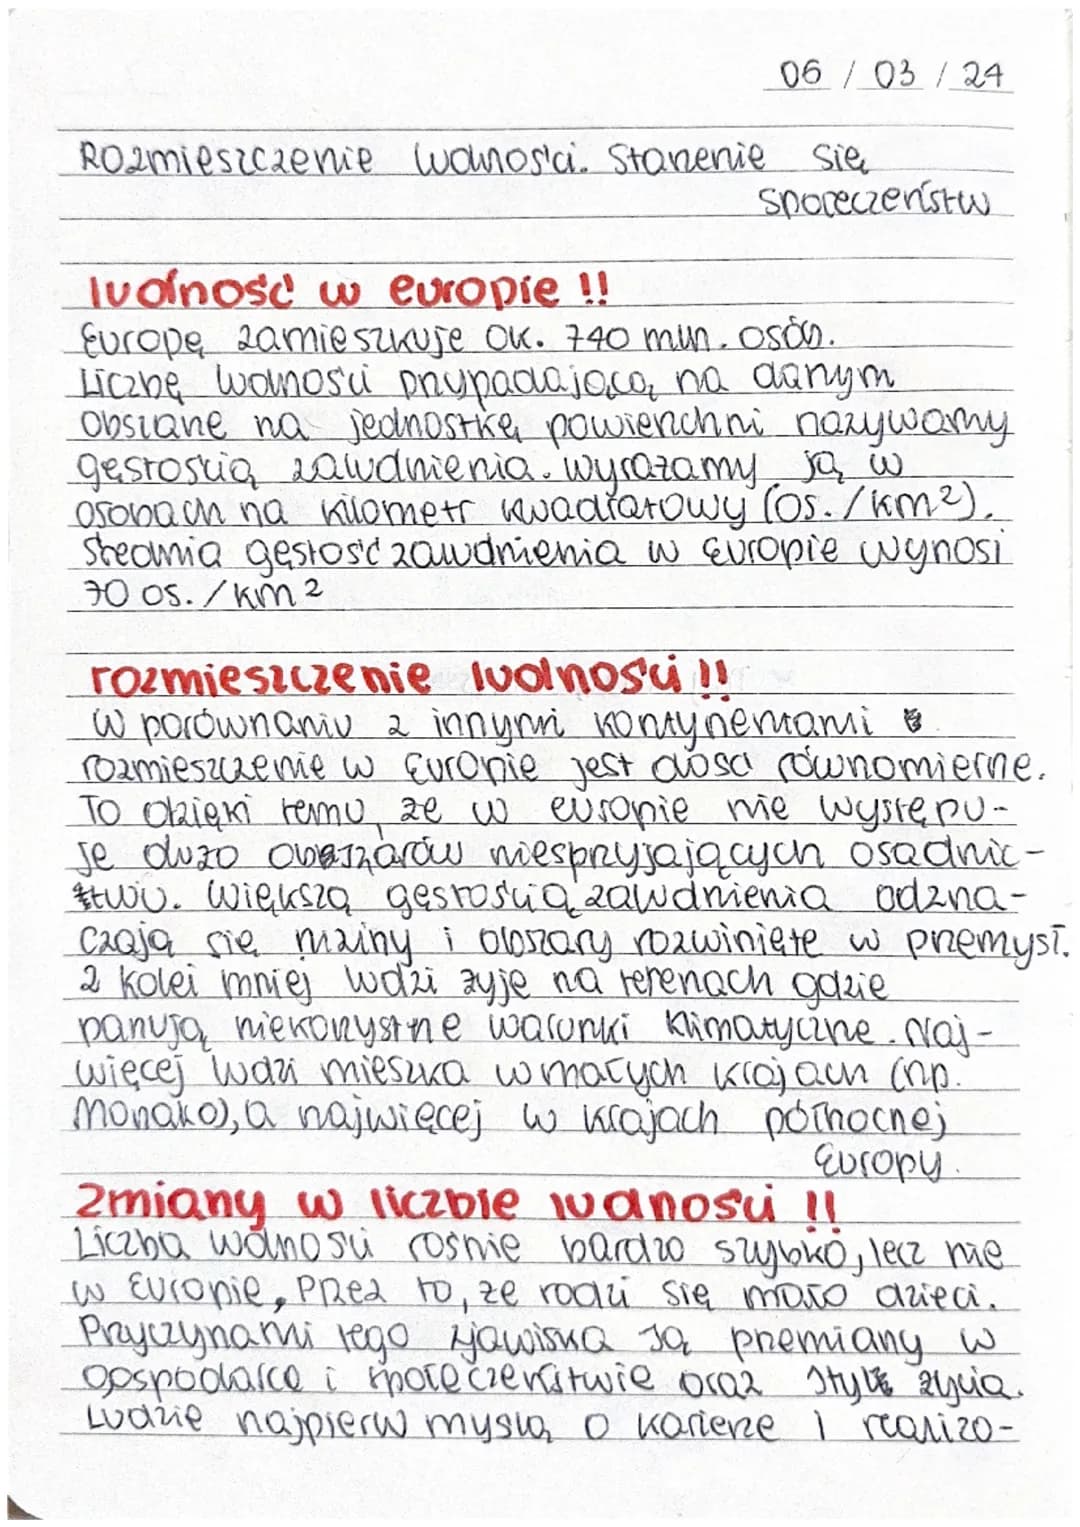 06 / 03 / 24
Rozmieszczenie ludności. Starzenie się
społeczeństw
ludność w europie !!
Europę zamieszkuje ok. 740 mln. osób.
Liczbę ludności przypadającą na danym
obszarze na jednostkę powierzchni nazywamy
gęstością zaludnienia. wyrażamy ją w
osobach na kilometr kwadratowy (os./km²).
Średnia gęstość zaludnienia w Europie wynosi
70 os./km²
rozmieszczenie ludności !!
W porównaniu z innymi kontynentami
rozmieszczenie w Europie jest dość równomierne.
To dzięki temu, że w europie nie występu-
je dużo obszarów niesprzyjających osadnic-
twu. Większą gęstością zaludnienia odzna-
czają się niziny i obszary rozwinięte w przemysł.
Z kolei mniej ludzi żyje na terenach gdzie
panują niekorzystne warunki klimatyczne. Naj-
więcej ludzi mieszka w małych krajach (np.
Monako), a najwięcej w krajach północnej
Europy.
Zmiany w liczbie ludności !!
Liczba ludności rośnie bardzo szybko, lecz nie
w Europie, Przez to, że rodzi się mało dzieci.
Przyczynami tego zjawiska są przemiany w
gospodarce i społeczeństwie oraz stylu życia.
Ludzie najpierw myślą o karierze i realizo-